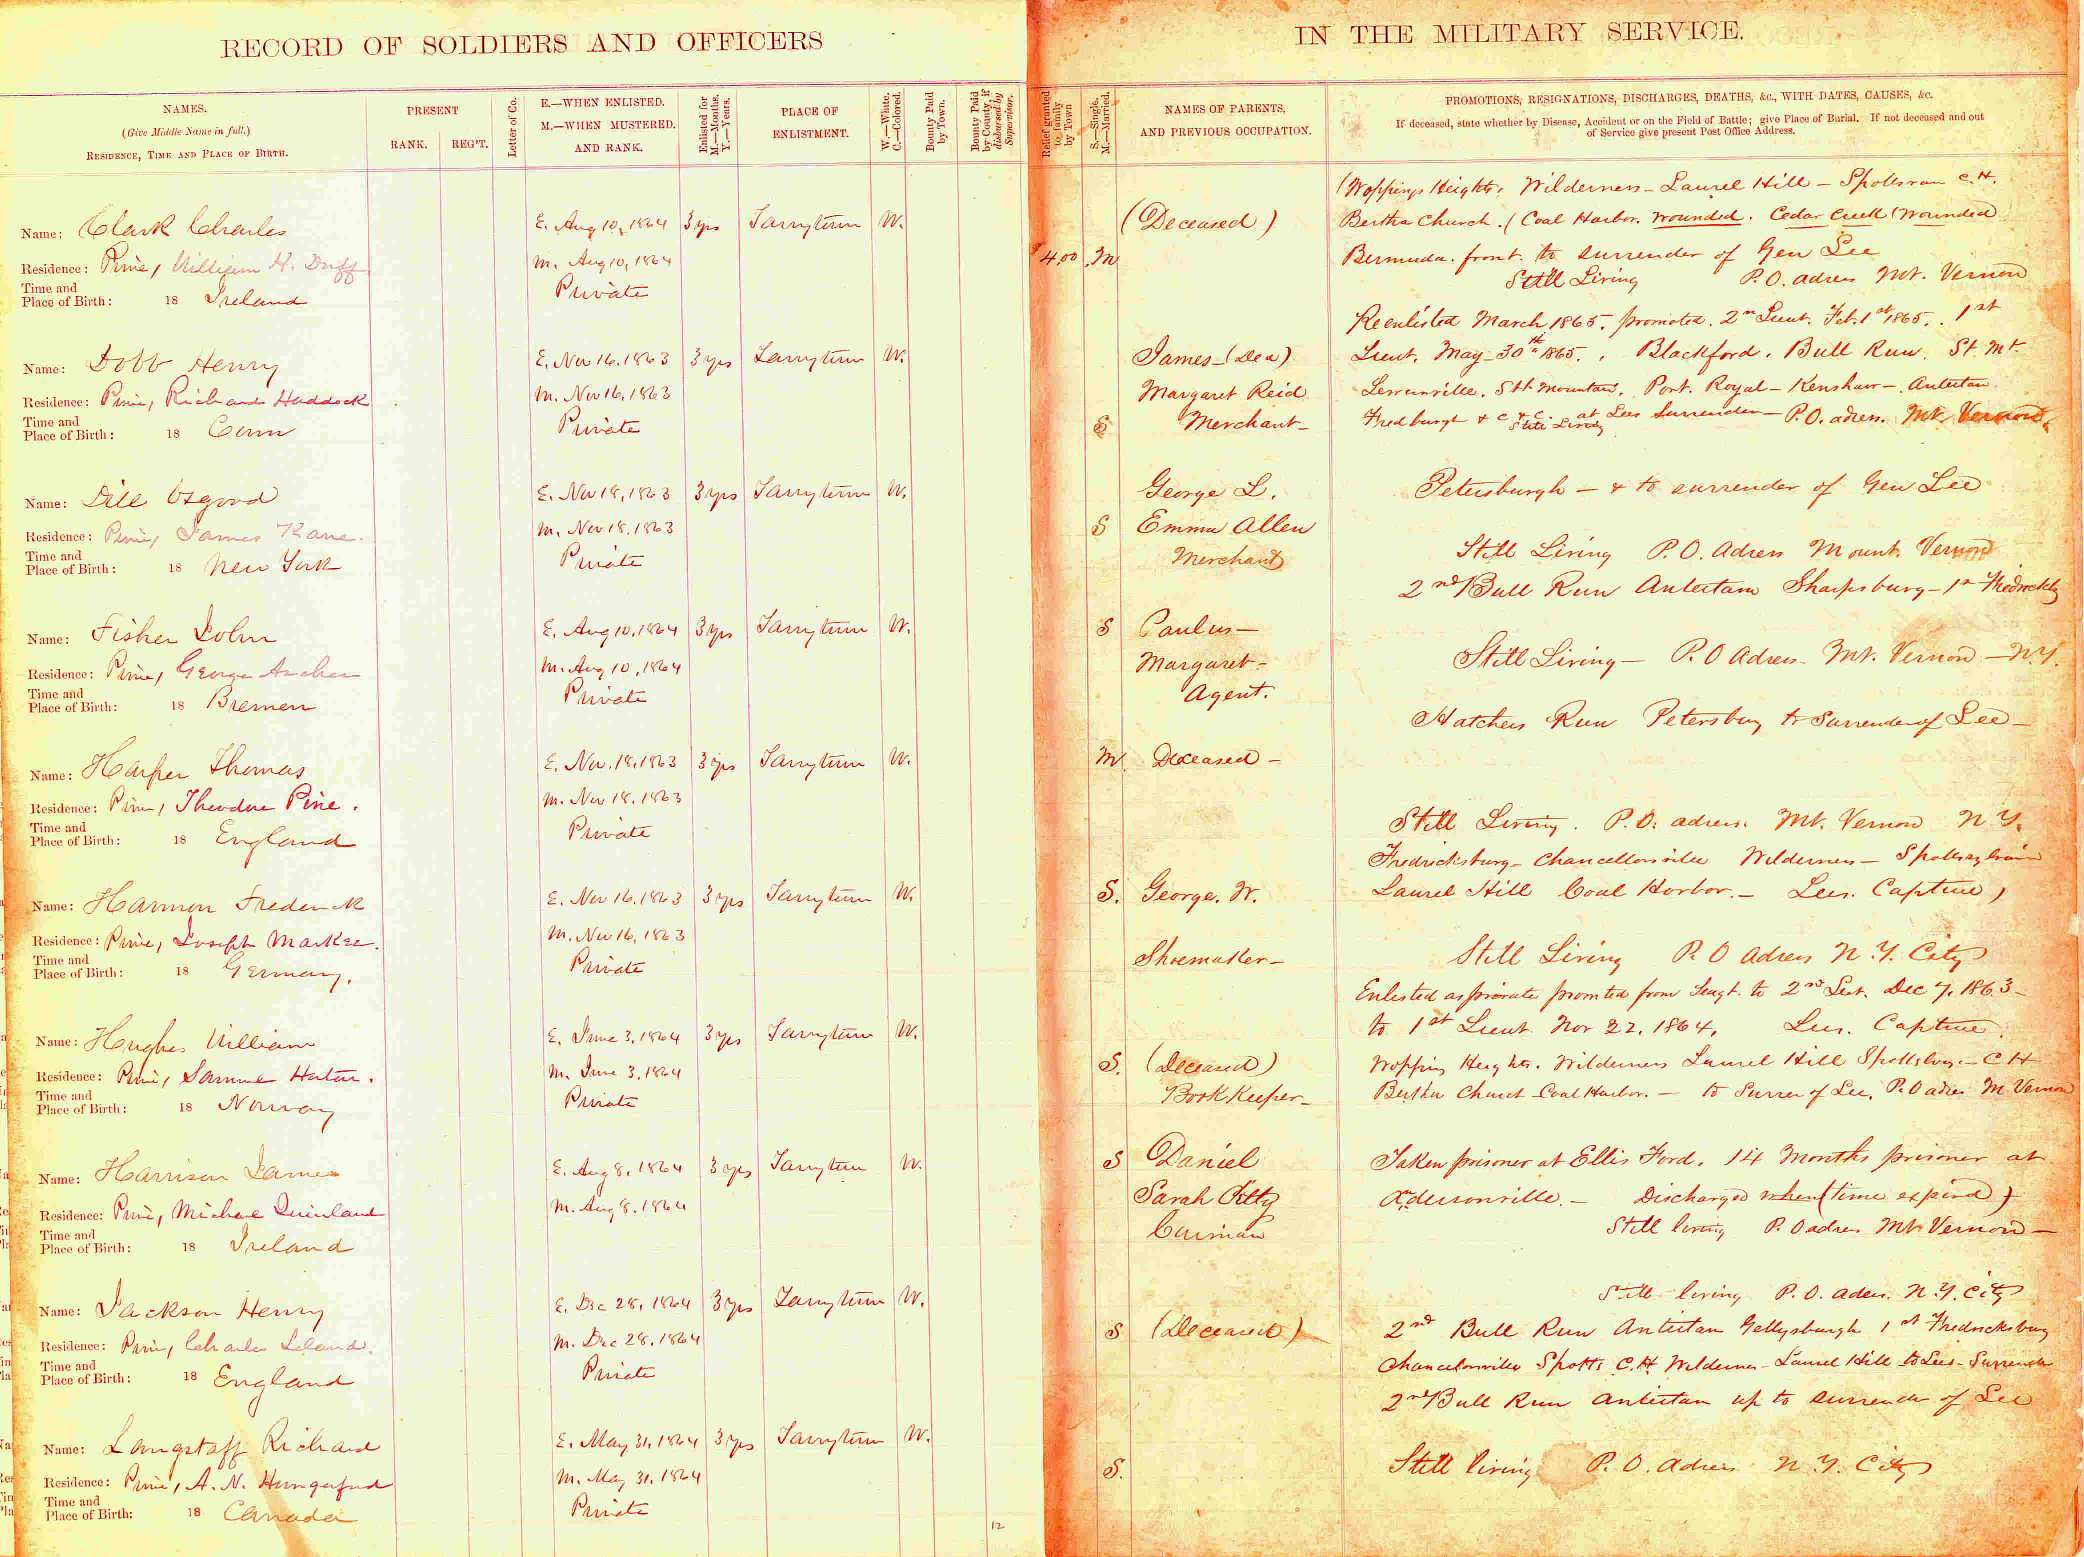 RECORD OF SOLDIERS AND OFFICERS
IN THE MILITARY SERVICE.
NAMES.
(Give Middle Name in full.)
RESIDENCE, TIME AND PLACE OF BIRTH.
PRESENT
RANK.
REG'T.
Letter of Co.
E.—WHEN ENLISTED.
M.—WHEN MUSTERED.
AND RANK.
Enlisted for
M.—Months.
Y.—Years.
PLACE OF
ENLISTMENT.
W.—White.
C.—Colored.
Bounty Paid
by Town.
Bounty Paid
by County, if
disbursed by
Supervisor.
Relief granted
to family
by Town
S.—Single.
M.—Married.
NAMES OF PARENTS,
AND PREVIOUS OCCUPATION.
PROMOTIONS, RESIGNATIONS, DISCHARGES, DEATHS, &c., WITH DATES, CAUSES, &c.
If deceased, state whether by Disease, Accident or on the Field of Battle; give Place of Burial. If not deceased and out
of Service give present Post Office Address.
Name: Clark Charles
Residence: Prin, William H. Duff
Time and
Place of Birth: 18 Ireland
E. Aug 10, 1864 3 yrs Tarrytown W.
M. Aug 10, 1864
Private
4.00 M
(Deceased)
(Woppings Heights, Wilderness - Laurel Hill - C.H.
Bertha Church. (Coal Harbor. wounded. Cedar Creek (wounded
Bermuda. front. to surrender of Gen Lee
Still Living P.O. adress Mt. Vernon
Name: Dobb Henry
Residence: Prin, Richard Haddock
Time and
Place of Birth: 18 Conn
E. Nov 16. 1863 3 yrs Tarrytown W.
M. Nov 16, 1863
Private
S
James - (Dea)
Margaret Reid
Merchant -
Reenlisted March 1865. promoted. 2nd Lieut. Feb. 1st 1865. 1st
Lieut. May 30th 1865. Blackford. Bull Run. St. Mt.
Sth Mountain, Port Royal - Kenshaw - Antietam
Fredburgh & c & c. at Lees Surrender - P.O. adress. Mt. Vernon.
Still Living
Name: Dill Osgood
Residence: Prin, James Kane.
Time and
Place of Birth: 18 New York
E. Nov 18, 1863 3 yrs Tarrytown W.
M. Nov 18. 1863
Private
S
George L.
Emma Allen
Merchant
Petersburgh - & to surrender of Gen Lee
Still Living P.O. Adress Mount Vernon
Name: Fisher John
Residence: Prin, George Archer
Time and
Place of Birth: 18 Bremen
E. Aug 10, 1864 3 yrs Tarrytown W.
M. Aug 10, 1864
Private
S
Paulus -
Margaret -
Agent.
2nd Bull Run Antietam Sharpsburg - 1st
Still Living - P.O Adress - Mt. Vernon - N.Y.
Name: Harper Thomas
Residence: Prin, Theodore Pine.
Time and
Place of Birth: 18 England
E. Nov. 18, 1863 3 yrs Tarrytown W.
M. Nov 18. 1863
Private
M. Deceased -
Hatchers Run Petersburg to Surrender of Lee -
Still Living. P.O. adress. Mt. Vernon N.Y.
Name: Harmon Frederick
Residence: Prin, Joseph Markee.
Time and
Place of Birth: 18 Germany.
E. Nov 16. 1863 3 yrs Tarrytown W.
M. Nov 16, 1863
Private
S. George. W.
Shoemaker -
Fredricksburg - Chancellorsville Wilderness - Spottsylvania
Laurel Hill Coal Horbor. - Lees. Capture,
Still Living P.O Adress N.Y. City
Name: Hughes William
Residence: Prin,
Time and
Place of Birth: 18 Norway
E. June 3, 1864 3 yrs Tarrytown W.
M. June 3, 1864
Private
S. (Deceased)
Book Keeper -
Enlisted as private promted from Seagt. to 2nd Leut. Dec 7, 1863 -
to 1st Lieut Nov 22, 1864, Lees. Capture.
Wopping Heights. Wilderness Laurel Hill - C H
Bertha Church Coal Harbor. - to Surren of Lee. P.O adres M Vernon
Name: Harrison James
Residence: Prin, Michael Quinland
Time and
Place of Birth: 18 Ireland
E. Aug 8, 1864 3 yrs Tarrytown W.
M. Aug 8. 1864
S Daniel
Sarah Pitty
Carman
Taken prisoner at Ellis Ford. 14 Months prisoner at
Andersonville. - Discharged when (time expired)
Still living P.O adres Mt Vernon -
Name: Jackson Henry
Residence: Prin, Charles Leland.
Time and
Place of Birth: 18 England
E. Dec 28, 1864 3 yrs Tarrytown W.
M. Dec 28. 1864
Private
S (Deceased)
Still living P.O. adres. N.Y. City
2nd Bull Run Antietam Gettysburgh 1st Fredricksburg
Spotts C.H. Wilderness - Laurel Hill to Lees - Surrender
Name: Langstaff Richard
Residence: Prin, A. N. Hungerford
Time and
Place of Birth: 18 Canada
E. May 31, 1864 3 yrs Tarrytown W.
M. May 31, 1864
Private
S.
2nd Bull Run Antietam up to surrender of Lee
Still living P.O. Adress N.Y. City
12